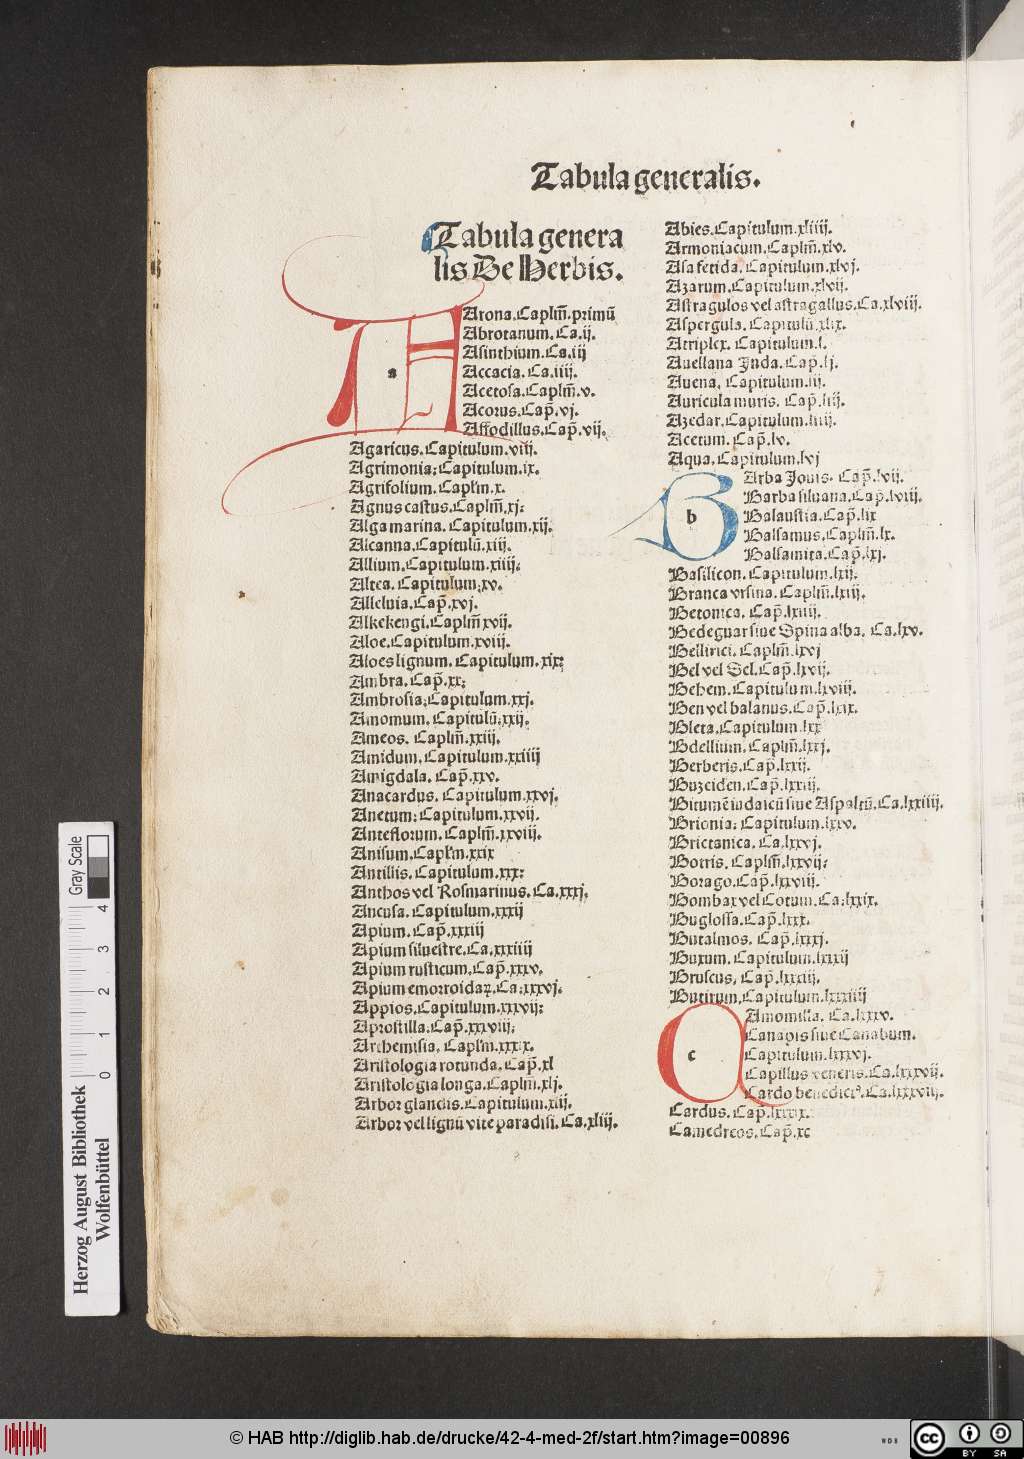 Tabula generalis.
Tabula genera
lis De Herbis.
a
Arona. Caplm̄. primū
Abrotanum. Ca. ij.
Asinthium. Ca. iij
Accacia. Ca. iiij.
Acetosa. Caplm̄. v.
Acorus. Cap̄. vj.
Affodillus. Cap̄. vij.
Agaricus. Capitulum. viij.
Agrimonia: Capitulum. ix.
Agrifolium. Caplm̄. x.
Agnus castus. Caplm̄. xj:
Alga marina. Capitulum. xij.
Alcanna. Capitulū. xiij.
Allium. Capitulum. xiiij:
Altea. Capitulum: xv.
Alleluia. Cap̄. xvj.
Alkekengi. Caplm̄ xvij.
Aloe. Capitulum. xviij.
Aloes lignum. Capitulum. xix:
Ambra. Cap̄. xx:
Ambrosia: Capitulum. xxj.
Amomum. Capitulū: xxij.
Ameos. Caplm̄. xxiij.
Amidum. Capitulum. xxiiij
Amigdala. Cap̄. xxv.
Anacardus. Capitulum. xxvj.
Anetum: Capitulum. xxvij.
Anteflorum. Caplm̄. xxviij.
Anisum. Caplm̄. xxix
Antillis. Capitulum. xxx:
Anthos vel Rosmarinus. Ca. xxxj.
Ancusa. Capitulum. xxxij
Apium. Cap̄. xxxiij
Apium siluestre. Ca. xxxiiij
Apium rusticum. Cap̄. xxxv.
Apium emorroidaꝝ. Ca: xxxvj.
Appios. Capitulum. xxxvij:
Aprostilla: Cap̄. xxxviij:
Arthemisia. Caplm̄. xxxix.
Aristologia rotunda. Cap̄. xl
Aristologia longa. Caplm̄. xlj.
Arbor glandis. Capitulum. xlij.
Arbor vel lignū vite paradisi. Ca. xliij.
Abies. Capitulum. xliiij.
Armoniacum. Caplm̄. xlv.
Asa fetida. Capitulum. xlvj.
Azarum. Capitulum. xlvij.
Astragulos vel astragallus. Ca. xlviij.
Aspergula. Capitulū. xlix.
Atriplex. Capitulum. l.
Auellana Inda. Cap̄. lj.
Auena. Capitulum. lij.
Auricula muris. Cap̄. liij.
Azedar. Capitulum. liiij.
Acetum. Cap̄. lv.
Aqua. Capitulum. lvj
b
Arba Jouis. Cap̄. lvij.
Barba siluana. Cap̄. lviij.
Balaustia. Cap̄. lix
Balsamus. Caplm̄. lx.
Balsamita. Cap̄. lxj.
Basilicon. Capitulum. lxij.
Branca vrsina. Caplm̄. lxiij.
Betonica. Cap̄. lxiiij.
Bedeguar siue Spina alba. Ca. lxv.
Bellirici. Caplm̄. lxvj
Bel vel Sel. Cap̄. lxvij.
Behem. Capitulum. lxviij.
Ben vel balanus. Cap̄. lxix.
Bleta. Capitulum. lxx
Bdellium. Caplm̄. lxxj.
Berberis. Cap̄. lxxij.
Buzeiden. Cap̄. lxxiij.
Bitumē iudaicū siue Aspaltū. Ca. lxxiiij.
Brionia: Capitulum. lxxv.
Brictanica. Ca. lxxvj.
Botris. Caplm̄. lxxvij:
Borago. Cap̄. lxxviij.
Bombax vel Cotum. Ca: lxxix.
Buglossa. Cap̄. lxxx.
Butalmos. Cap̄. lxxxj.
Buxum. Capitulum. lxxxij
Bruscus. Cap̄. lxxxiij.
Butirum. Capitulum. lxxxiiij
c
Amomilla. Ca. lxxxv.
Canapis siue Canabum.
Capitulum. lxxxvj.
Capillus veneris. Ca. lxxxvij.
Cardo benedictꝰ. Ca. lxxxviij.
Cardus. Cap̄. lxxxix.
Camedreos. Cap̄. xc
Gray Scale
4
3
2
1
0
Herzog August Bibliothek
Wolfenbüttel
© HAB http://diglib.hab.de/drucke/42-4-med-2f/start.htm?image=00896
WDB
cc
BY SA